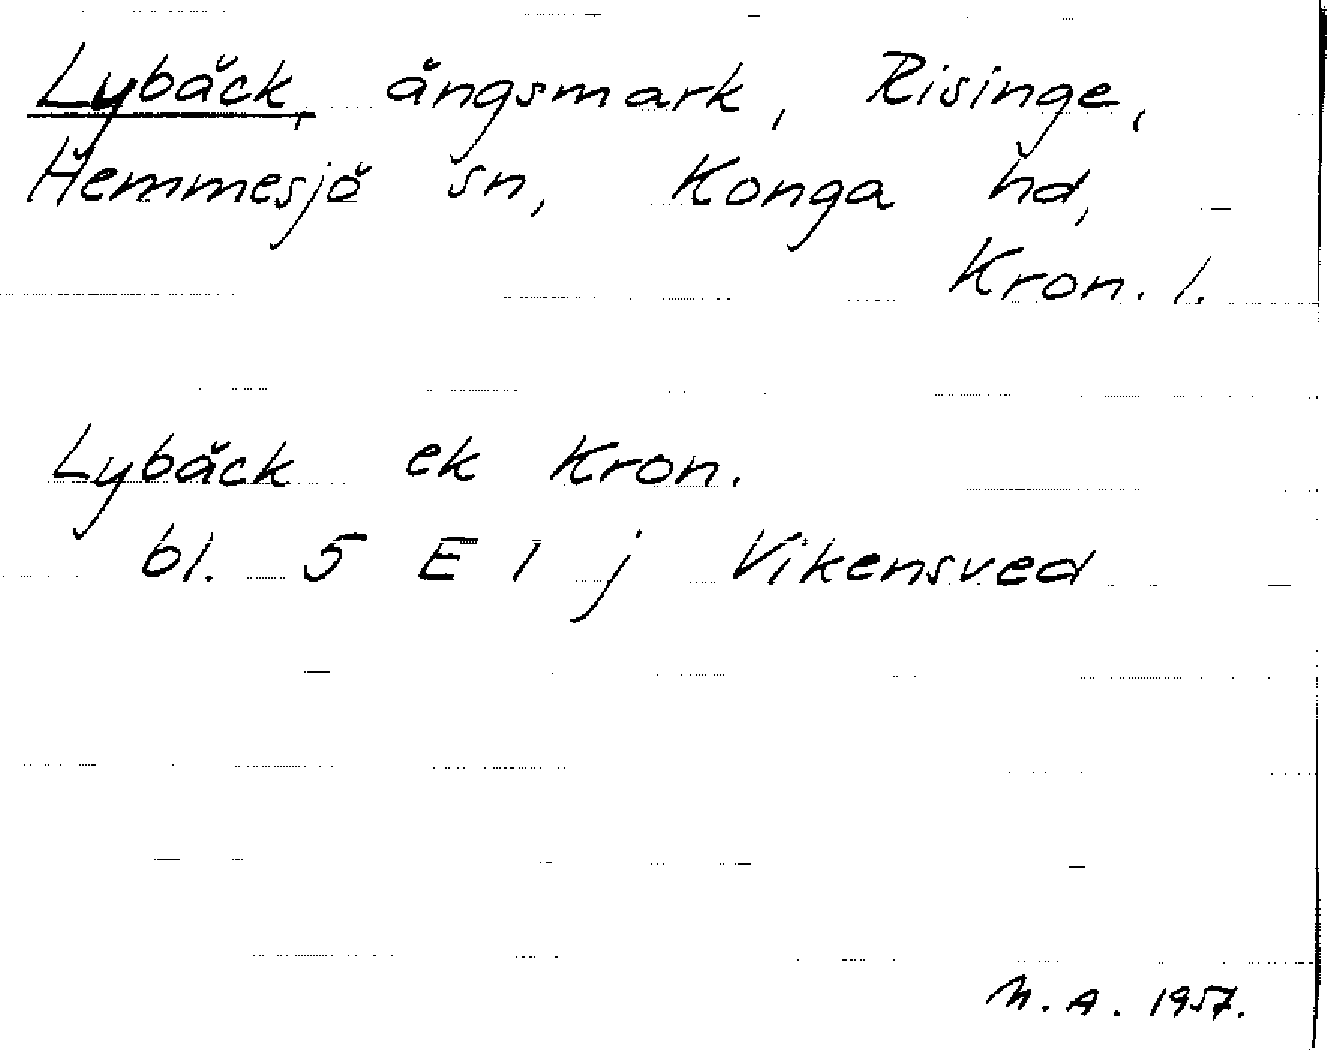 Lybäck, ängsmark, Risinge,
Hemmesjö sn, Konga hd,
Kron. l.
Lybäck ek Kron.
bl. 5 E 1 j Vikensved
N. A. 1957.